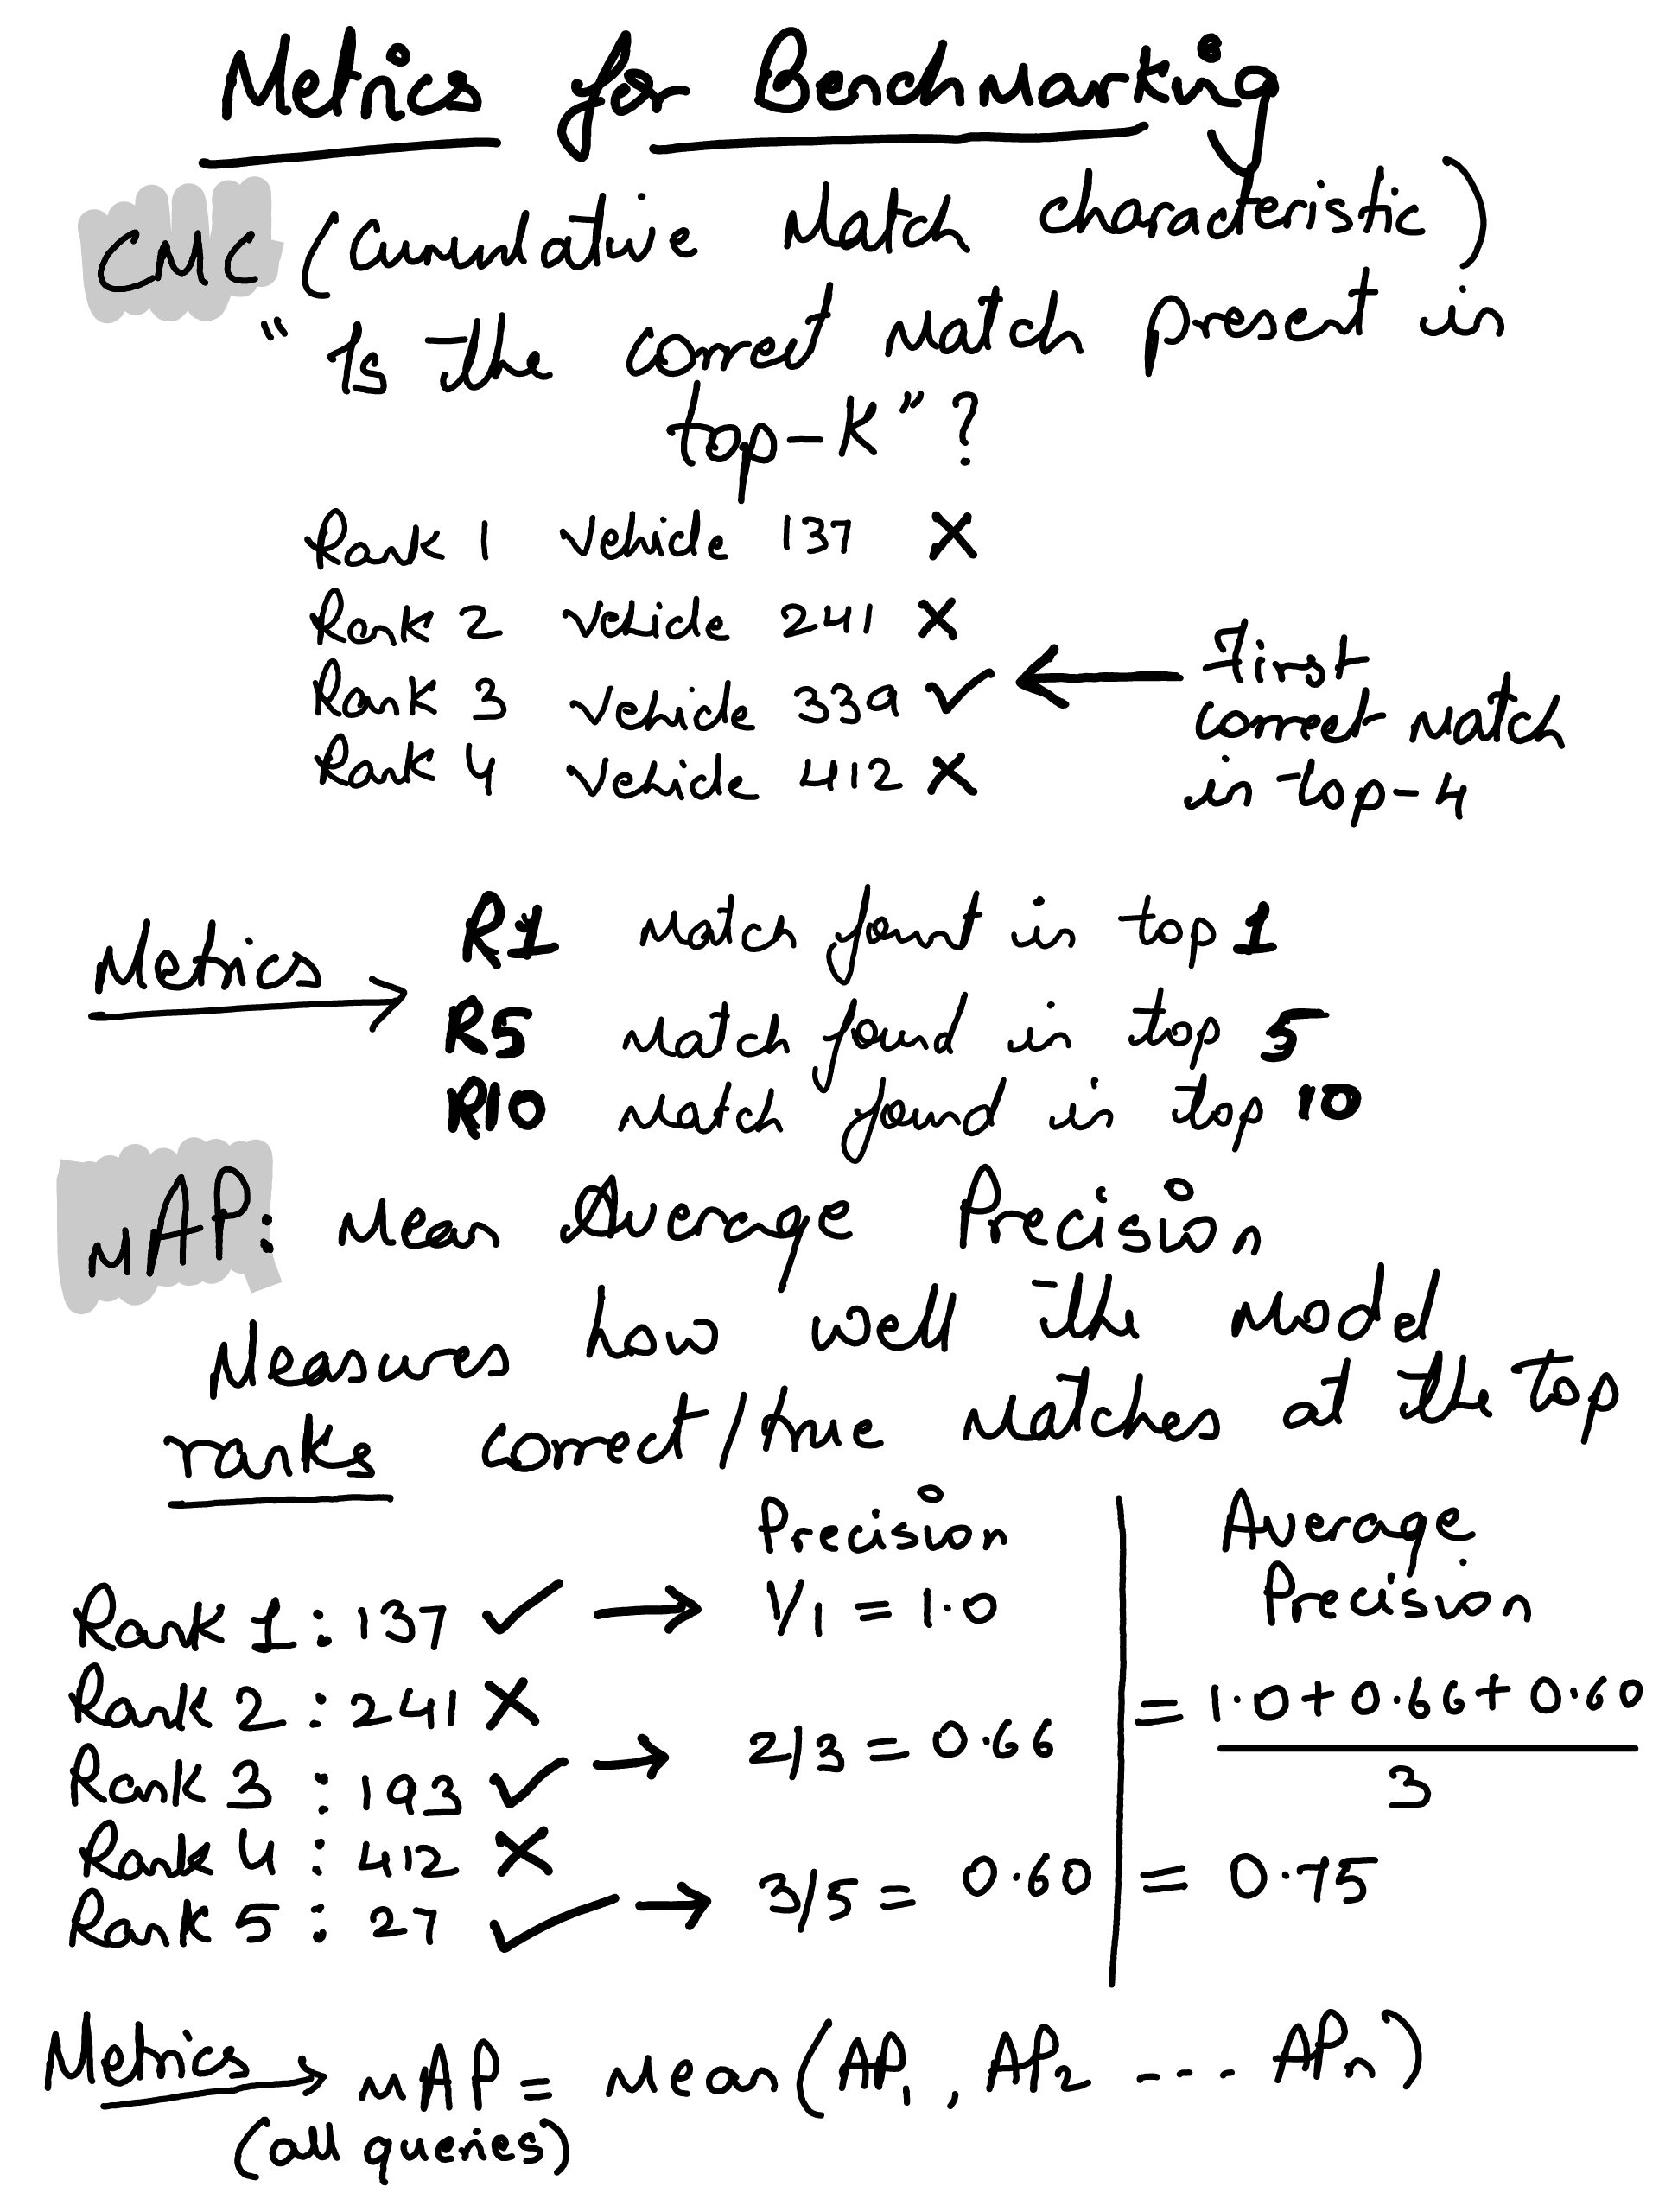 Metrics for Benchmarking
CMC (Cumulative Match characteristic)
" Is the correct match present in
top-K" ?
Rank 1 Vehicle 137 ✗
Rank 2 Vehicle 241 ✗
Rank 3 Vehicle 339 ✓ ← First
correct match
in top-4
Rank 4 Vehicle 412 ✗
Metrics → R1 Match fount in top 1
R5 Match found in top 5
R10 Match found in top 10
mAP: Mean Average Precision
Measures how well the model
ranks correct/true matches at the top
Precision
Rank 1 : 137 ✓ → 1/1 = 1.0
Rank 2 : 241 ✗
Rank 3 : 193 ✓ → 2/3 = 0.66
Rank 4 : 412 ✗
Rank 5 : 27 ✓ → 3/5 = 0.60
Average
Precision
= 1.0 + 0.66 + 0.60
3
= 0.75
Metrics → mAP = Mean (AP₁, AP₂ ---. APₙ)
(all queries)